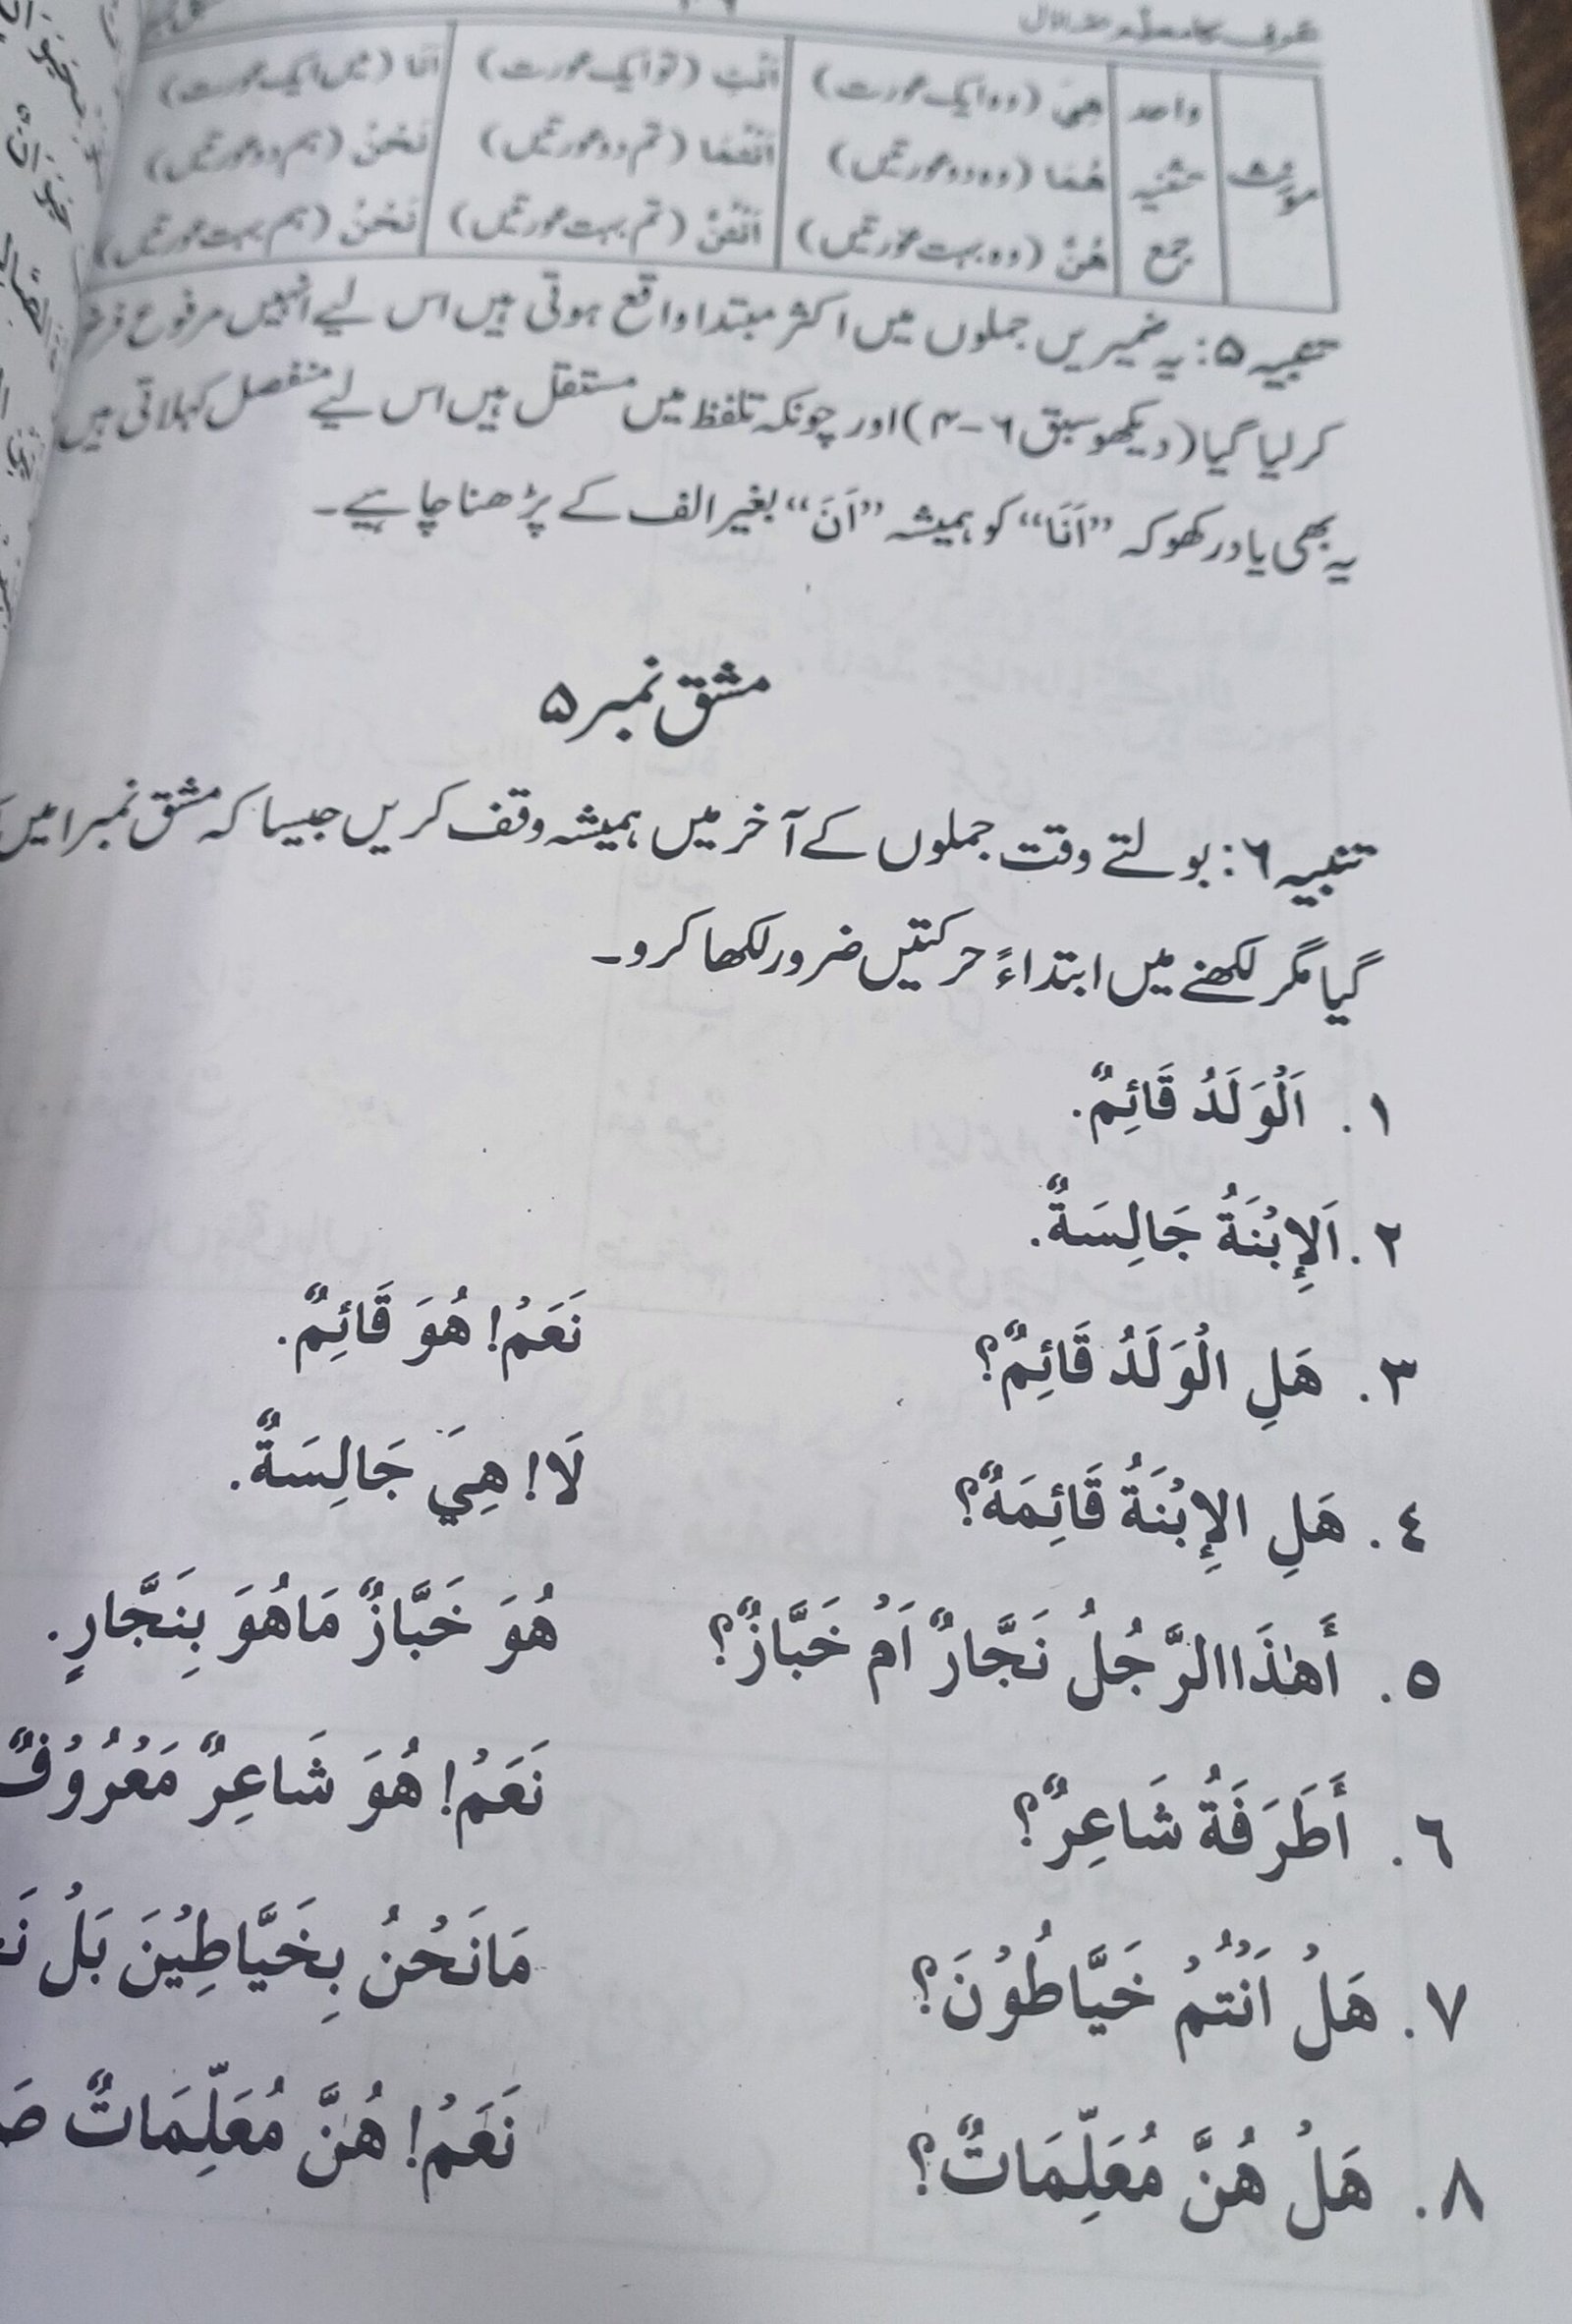 مؤنث واحد هِيَ (وہ ایک عورت) اَنْتِ (تو ایک عورت) اَنَا (میں ایک عورت)
تثنیہ هُمَا (وہ دو عورتیں) اَنْتُمَا (تم دو عورتیں) نَحْنُ (ہم دو عورتیں)
جمع هُنَّ (وہ بہت عورتیں) اَنْتُنَّ (تم بہت عورتیں) نَحْنُ (ہم بہت عورتیں)
تنبیہ ۵: یہ ضمیریں جملوں میں اکثر مبتدا واقع ہوتی ہیں اس لیے انہیں مرفوع فرض
کر لیا گیا (دیکھو سبق ۶-۴) اور چونکہ تلفظ میں مستقل ہیں اس لیے منفصل کہلاتی ہیں
یہ بھی یاد رکھو کہ ”اَنَا“ کو ہمیشہ ”اَنَ“ بغیر الف کے پڑھنا چاہیے۔
مشق نمبر ۵
تنبیہ ۶: بولتے وقت جملوں کے آخر میں ہمیشہ وقف کریں جیسا کہ مشق نمبر ۱ میں
گیا مگر لکھنے میں ابتداءً حرکتیں ضرور لکھا کرو۔
١. اَلْوَلَدُ قَائِمٌ.
٢. اَلإِبْنَةُ جَالِسَةٌ.
٣. هَلِ الْوَلَدُ قَائِمٌ؟ نَعَمْ! هُوَ قَائِمٌ.
٤. هَلِ الإِبْنَةُ قَائِمَةٌ؟ لَا! هِيَ جَالِسَةٌ.
٥. أَهٰذَا الرَّجُلُ نَجَّارٌ اَمْ خَبَّازٌ؟ هُوَ خَبَّازٌ مَاهُوَ بِنَجَّارٍ.
٦. أَطَرَفَةُ شَاعِرٌ؟ نَعَمْ! هُوَ شَاعِرٌ مَعْرُوْفٌ
٧. هَلْ اَنْتُمْ خَيَّاطُوْنَ؟ مَانَحْنُ بِخَيَّاطِيْنَ بَلْ
٨. هَلْ هُنَّ مُعَلِّمَاتٌ؟ نَعَمْ! هُنَّ مُعَلِّمَاتٌ